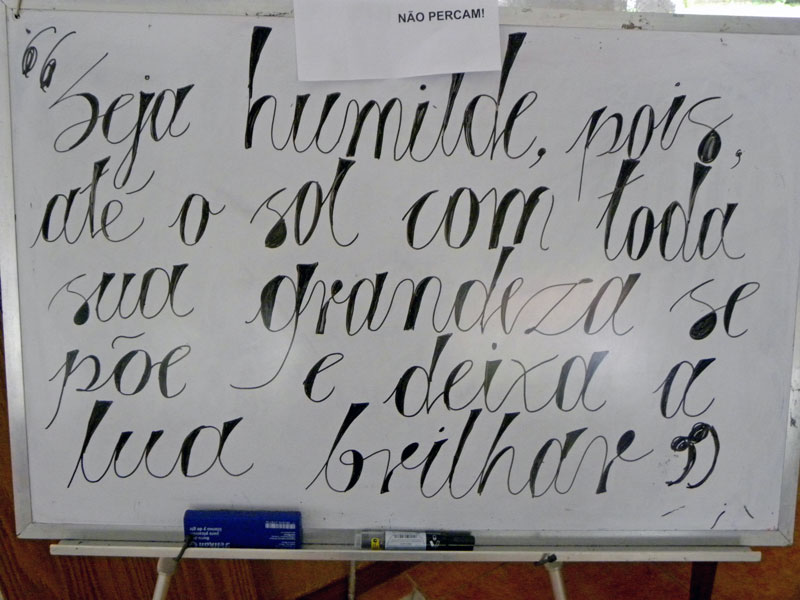 NÃO PERCAM!
“Seja humilde, pois,
até o sol com toda
sua grandeza se
põe e deixa a
lua brilhar”